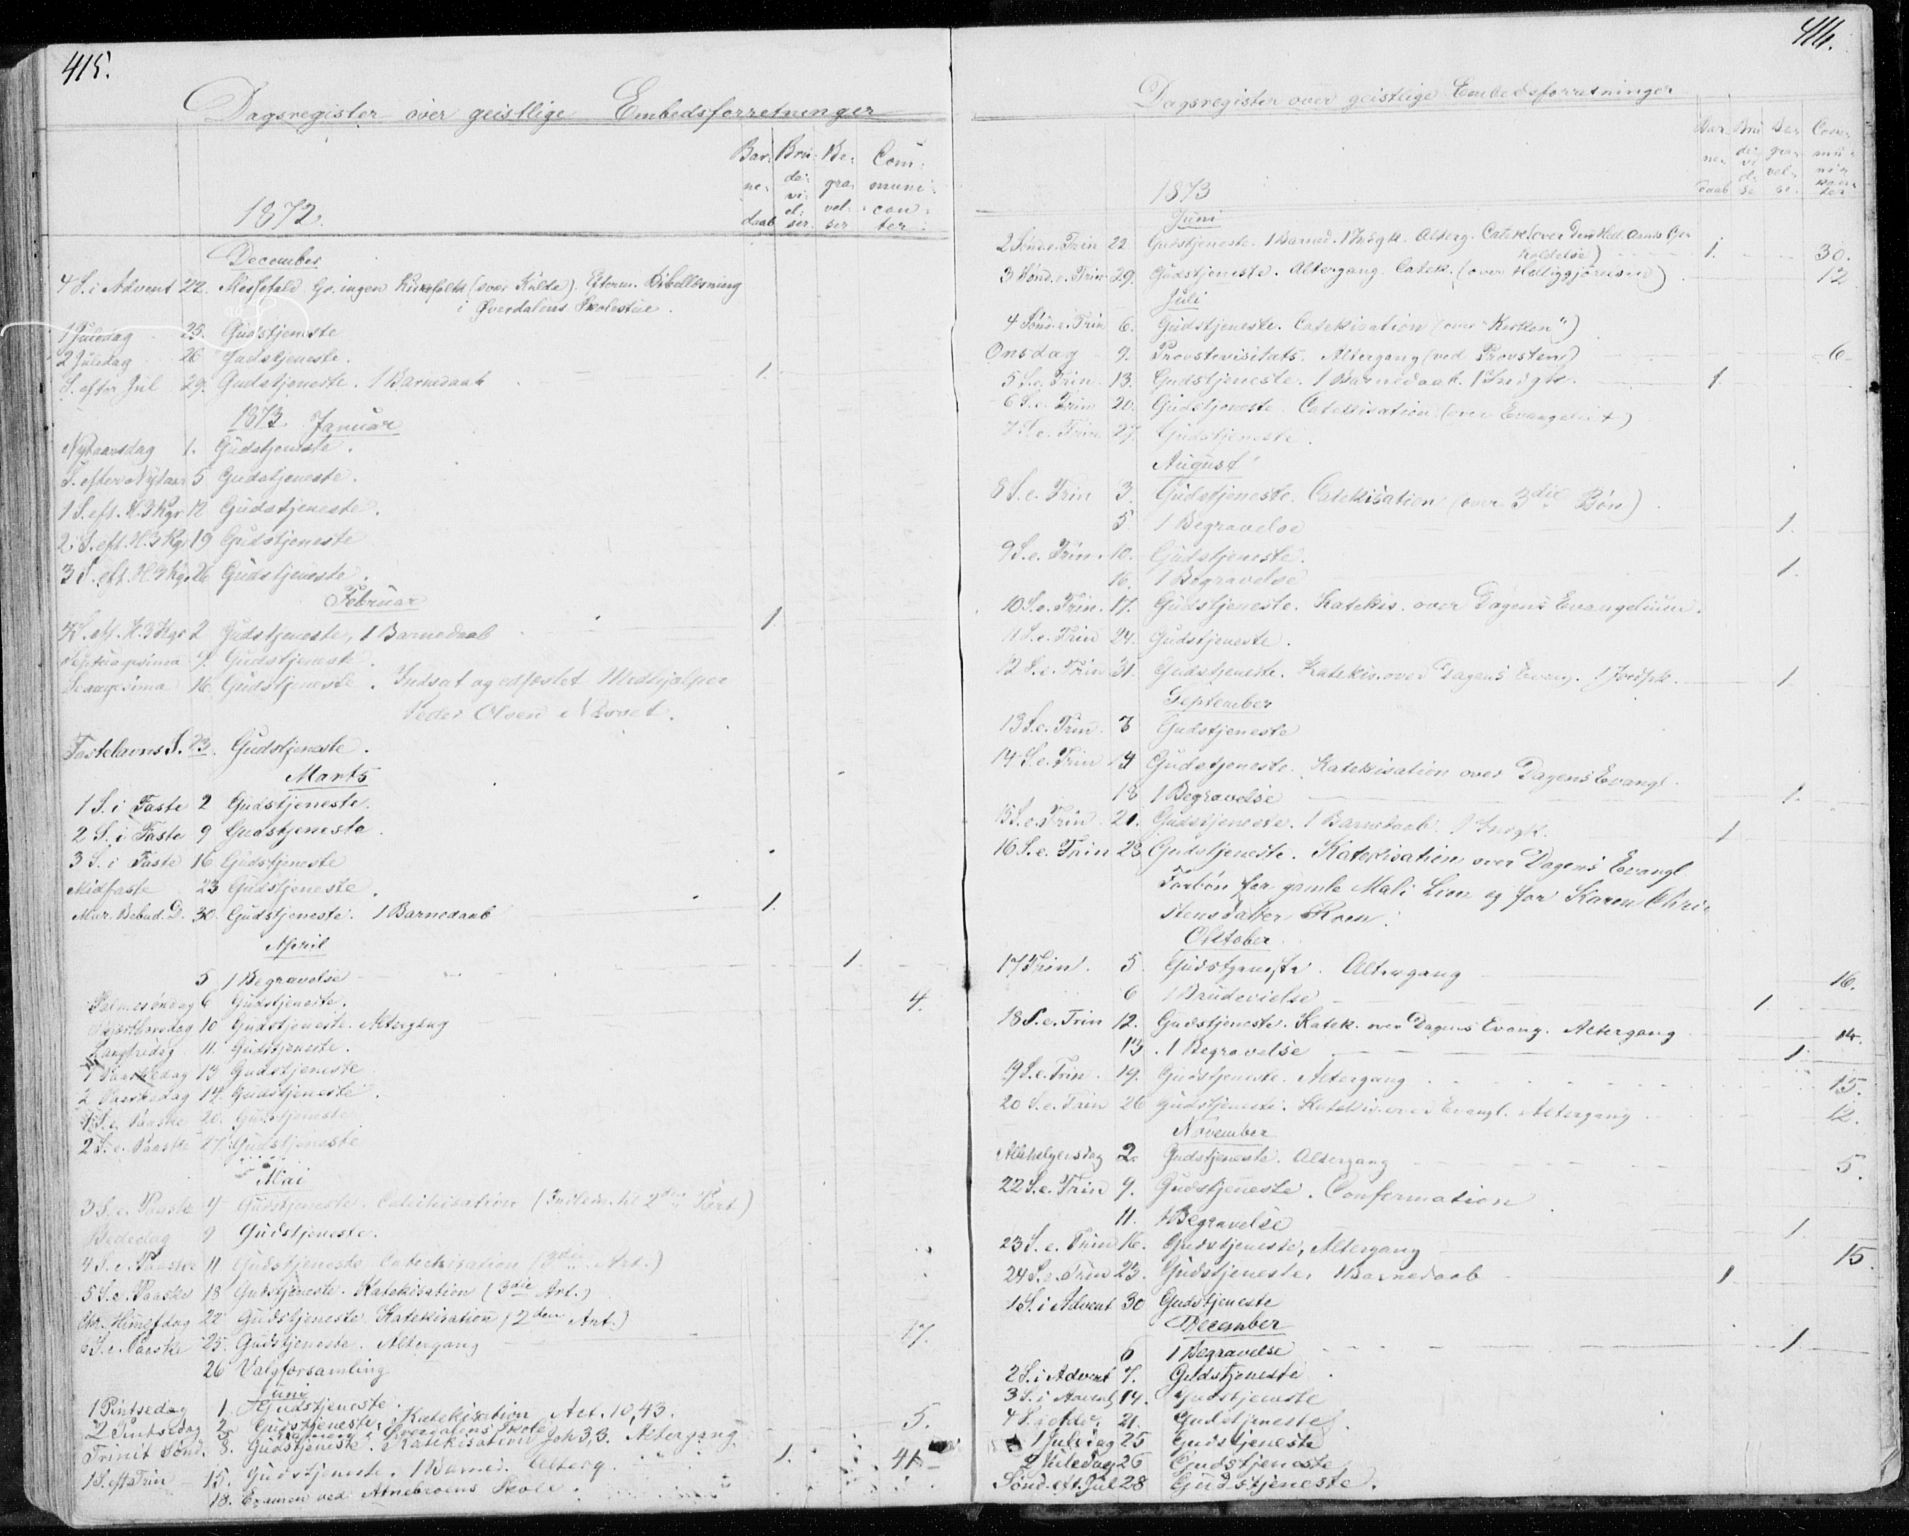 415.
Dagsregister over geistlige Embedsforretninger
1872.
Bar: ne: daab
Bru: de: vi: el: ser
Be: gra: vel: ser
Com: muni: can: ter
December
4 S. i Advent 22. Messefald Gr. ingen Kirkefolk (svær Kulde). Efterm. Bibellæsning
i Øverdalens Skolestue.
1 Juledag 25. Gudstjeneste
2 Juledag 26 Gudstjeneste.
S. efter Jul 29. Gudstjeneste. 1 Barnedaab 1.
1873 Januar
Nytaarsdag 1. Gudstjeneste.
S. efter Nytaar 5 Gudstjeneste.
1 S. eft. H. 3 Kgr 12 Gudstjeneste.
2. S. eft. H. 3 Kgr 19 Gudstjeneste
3 S. eft. H. 3 Kgr 26 Gudstjeneste.
Februar
4 S. eft. H. 3 Kgr 2 Gudstjeneste, 1 Barnedaab 1.
Septuagesima 9. Gudstjeneste.
Sexagesima 16 Gudstjeneste. Indsat og edfæstet Medhjælper
Peder Olsen
Fastelavns S. 23. Gudstjeneste.
Marts
1 S. i Faste 2 Gudstjeneste.
2 S. i Faste 9 Gudstjeneste.
3 S. i Faste 16 Gudstjeneste
Midfaste 23 Gudstjeneste.
Mar. Bebud. D. 30. Gudstjeneste. 1 Barnedaab 1.
April
5 1 Begravelse 1.
Palmesöndag 6 Gudstjeneste.
Skjærthorsdag 10 Gudstjeneste. Altergang 4.
Langfredag 11. Gudstjeneste.
1 Paaskedag 13 Gudstjeneste
2 Paaskedag 14 Gudstjeneste.
1 S. e. Paaske 20. Gudstjeneste
2 S. e. Paaske 27 Gudstjeneste
Mai
3 S. e. Paaske 4 Gudstjeneste. Catechisation (Indledn. til 2den Part)
Bededag 9 Gudstjeneste.
4 S. e. Paaske 11 Gudstjeneste Catechisation (3die Art.)
5 S. e. Paaske 18 Gudstjeneste. Katekisation (3die Art.)
Chr. Himmelfdag 22 Gudstjeneste. Katekisation (2den Art.)
6 S. e. Paaske 25. Gudstjeneste. Altergang 17.
26 Valgforsamling
Juni
1 Pintsedag 1. Gudstjeneste.
2 Pintsedag 2. Gudstjeneste. Katekisation Act. 10,43.
Examen i Øverdalens Skole
Trinit Sönd. 8. Gudstjeneste. Katekisation Joh 3,3. Altergang 5.
1 S. eft Trin 15. Gudstjeneste. 1 Barned. Alterg. 1. 41.
18. Examen ved Atnebroens Skole.
416.
Dagsregister over geistlige Embedsforretninger
1873
Bar ne daab
Bru de vi el se
Be gra vel se
Com mu ni kan ter
Juni
2 Sönd. e. Trin 22. Gudstjeneste. 1 Barned. 1 Indgk. Alterg. Catek. (over Den Hell. Aands Gjer
1. 30.
3 Sönd. e. Trin 29. Gudstjeneste. Altergang. Catek. (over Helliggjörelsen) 12
Juli
4 Sönd. e. Trin 6. Gudstjeneste. Catekisation (over "Kirken")
Onsdag 9. Provstevisitats. Altergang (ved Provsten) 6
5 S. e. Trin. 13. Gudstjeneste. 1 Barnedaab. 1 Indgk. 1.
6 S. e. Trin 20. Gudstjeneste. Catekisation (over Evangeliet)
7 S. e. Trin. 27 Gudstjeneste.
August
8 S. e. Trin 3. Gudstjeneste. Catekisation (over 3die Bön)
5. 1 Begravelse 1.
9 S. e. Trin. 10. Gudstjeneste.
16. 1 Begravelse 1.
10 S. e. Trin. 17. Gudstjeneste. Katekis. over Dagens Evangelium.
11 S. e. Trin 24. Gudstjeneste.
12 S. e. Trin 31. Gudstjeneste. Katekis. over Dagens Evang. 1 Jordpk. 1.
September
13 S. e. Trin. 7 Gudstjeneste
14 S. e. Trin 14 Gudstjeneste. Katekisation over Dagens Evangl.
18 1 Begravelse 1.
15 S. e. Trin. 21. Gudstjeneste. 1 Barnedaab. 1 Indgk. 1
16 S. e. Trin 28 Gudstjeneste. Katekisation over Dagens Evangl
Forbön for gamle Mali Lien og for Karen Chri:
stensdatter Roen.
Oktober
17 Trin. 5. Gudstjeneste. Altergang 16.
6 1 Brudevielse 1.
18 S. e. Trin 12. Gudstjeneste. Katek. over Dagens Evang. Altergang 14.
13. 1 Begravelse 1.
19 S. e. Trin. 19. Gudstjeneste. Altergang 15.
20 S. e. Trin 26 Gudstjeneste. Katekis. over Evangl. Altergang 12.
November
Allehelgensdag 2. Gudstjeneste. Altergang 5.
22 S. e. Trin 9. Gudstjeneste. Confirmation
11. 1 Begravelse 1.
23 S. e. Trin 16. Gudstjeneste, Altergang 15.
24 S. e. Trin 23. Gudstjeneste, 1 Barnedaab 1
1 S. i Advent 30 Gudstjeneste
December
6 1 Begravelse 1
2 S. i Advent 7. Gudstjeneste.
3 S. i Advent 14. Gudstjeneste
4 S. i 21. Gudstjeneste
1 Juledag 25 Gudstjeneste
2 Juledag 26 Gudstjeneste
Sönd. eft. Jul 28 Gudstjeneste.